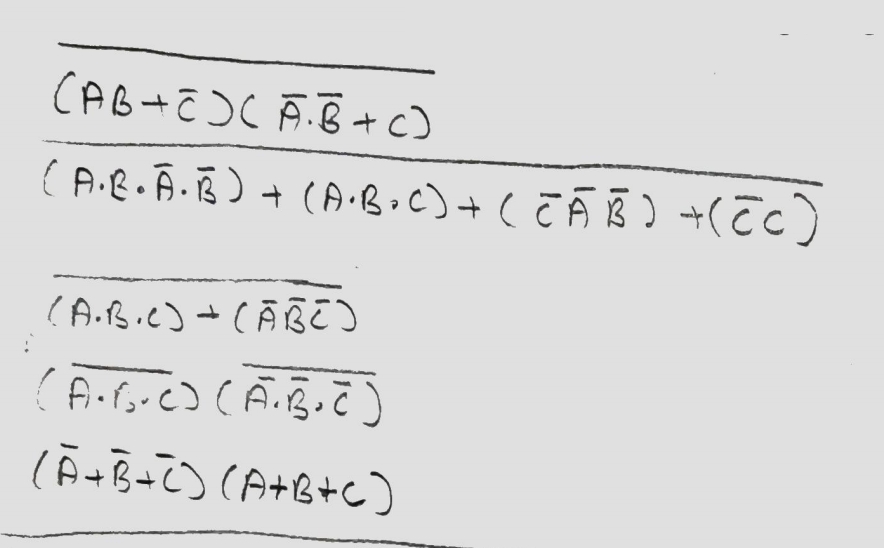 \overline{(AB+\bar{C})(\bar{A}.\bar{B}+C)}
\overline{(A.B.\bar{A}.\bar{B})+(A.B.C)+(\bar{C}\bar{A}\bar{B})+(\bar{C}C)}
\overline{(A.B.C)+(\bar{A}\bar{B}\bar{C})}
(\overline{A.B.C})(\overline{\bar{A}.\bar{B}.\bar{C}})
(\bar{A}+\bar{B}+\bar{C})(A+B+C)